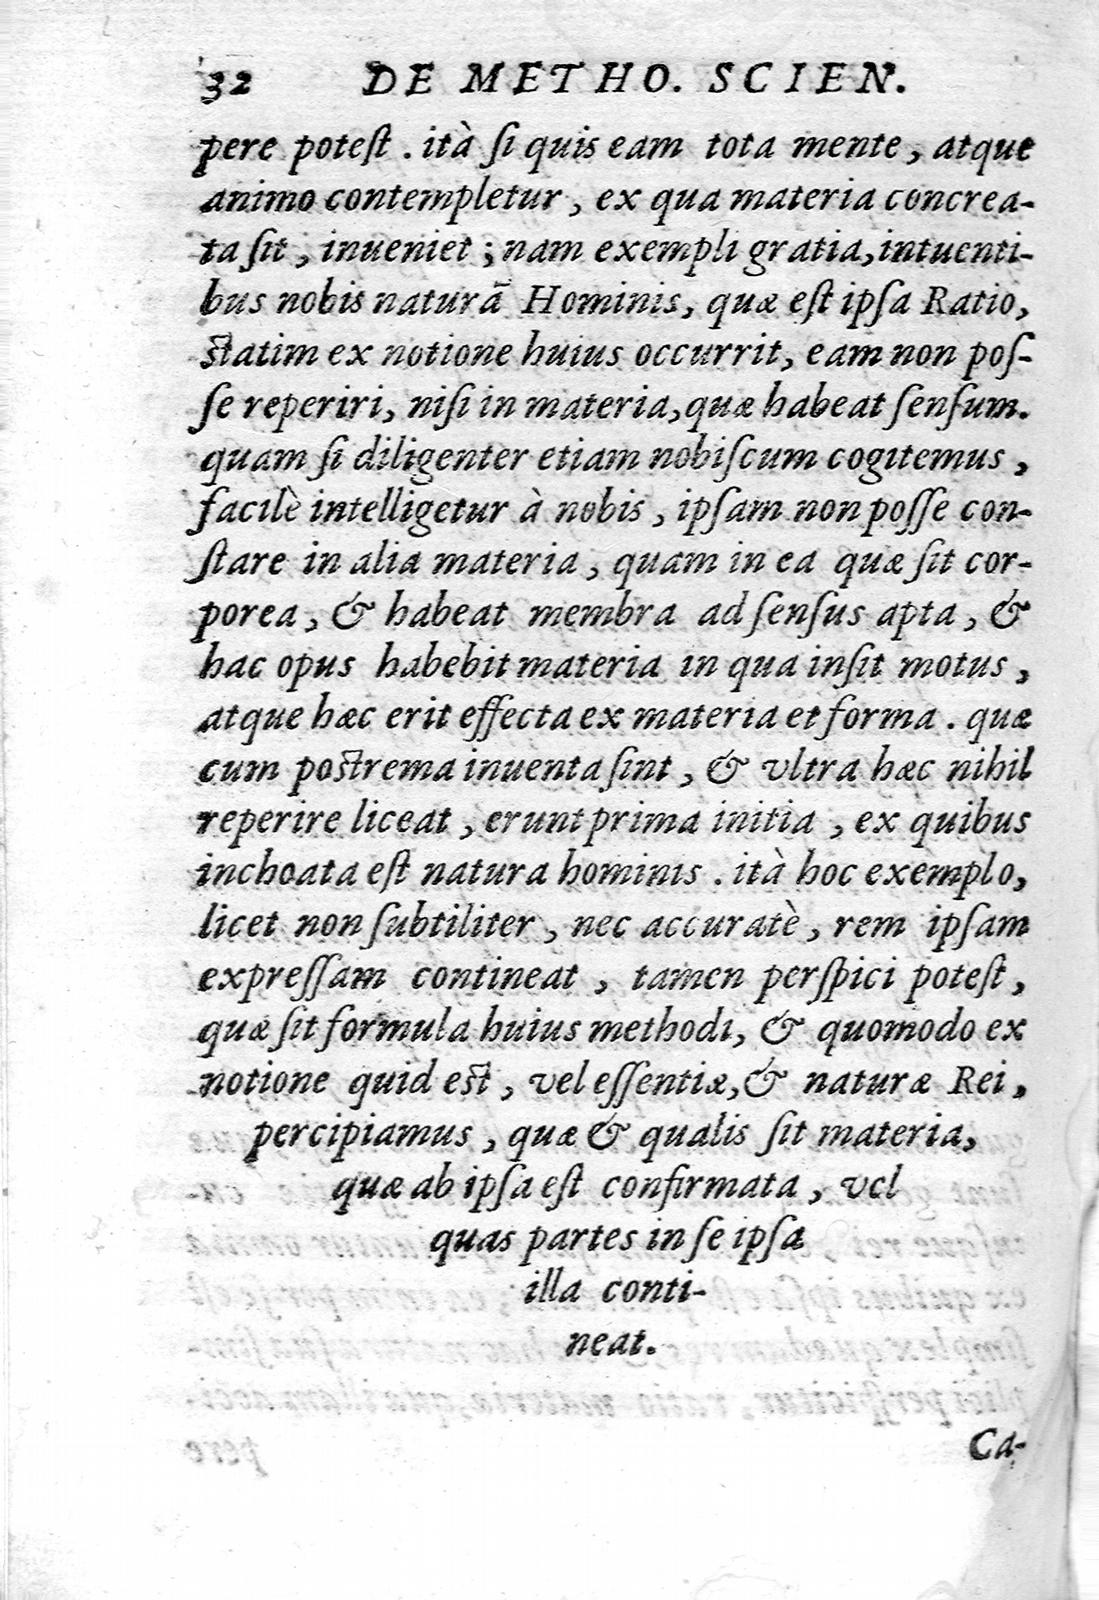 32 DE METHO. SCIEN.
pere poteſt . ità ſi quis eam tota mente, atque
animo contempletur, ex qua materia concrea-
ta ſit, inueniet; nam exempli gratia, intuenti-
bus nobis naturā Hominis, quæ eſt ipſa Ratio,
ſtatim ex notione huius occurrit, eam non poſ-
ſe reperiri, niſi in materia, quæ habeat ſenſum.
quam ſi diligenter etiam nobiſcum cogitemus,
facilè intelligetur à nobis, ipſam non poſſe con-
ſtare in alia materia, quam in ea quæ ſit cor-
porea, & habeat membra ad ſenſus apta, &
hac opus habebit materia in qua inſit motus,
atque hæc erit effecta ex materia et forma. quæ
cum poſtrema inuenta ſint, & vltra hæc nihil
reperire liceat, erunt prima initia, ex quibus
inchoata eſt natura hominis. ità hoc exemplo,
licet non ſubtiliter, nec accuratè, rem ipſam
expreſſam contineat, tamen perſpici poteſt,
quæ ſit formula huius methodi, & quomodo ex
notione quid eſt, vel eſſentiæ, & naturæ Rei,
percipiamus, quæ & qualis ſit materia,
quæ ab ipſa eſt confirmata, vel
quas partes in ſe ipſa
illa conti-
neat.
Ca-